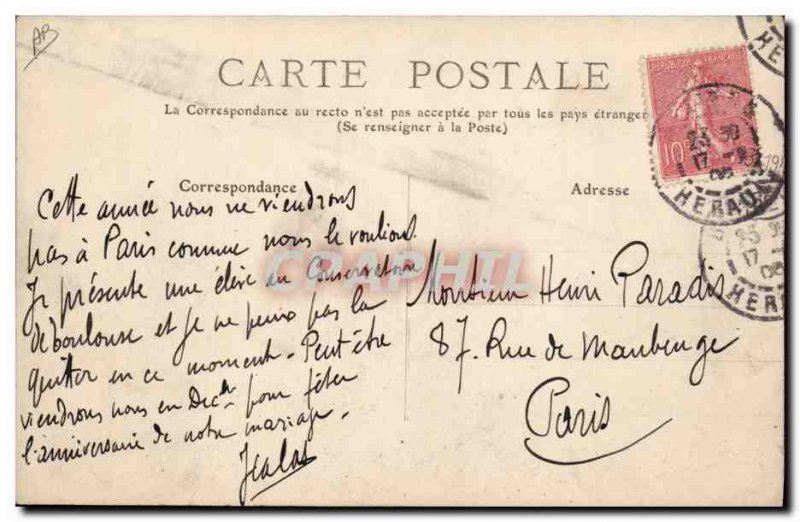 AB
CARTE POSTALE
La Correspondance au recto n'est pas acceptée par tous les pays étranger
(Se renseigner à la Poste)
Correspondance
Adresse
RÉPUBLIQUE FRANÇAISE
10
HÉRAULT
Cette année nous ne viendrons
pas à Paris comme nous le voulions.
Je présente une élève au Conservatoire
de Toulouse et je ne peux pas la
quitter en ce moment. Peut-être
viendrons nous en Dec. pour fêter
l'anniversaire de notre mariage.
Monsieur Henri Paradis
87. Rue de Maubeuge
Paris
CPARAPHIL